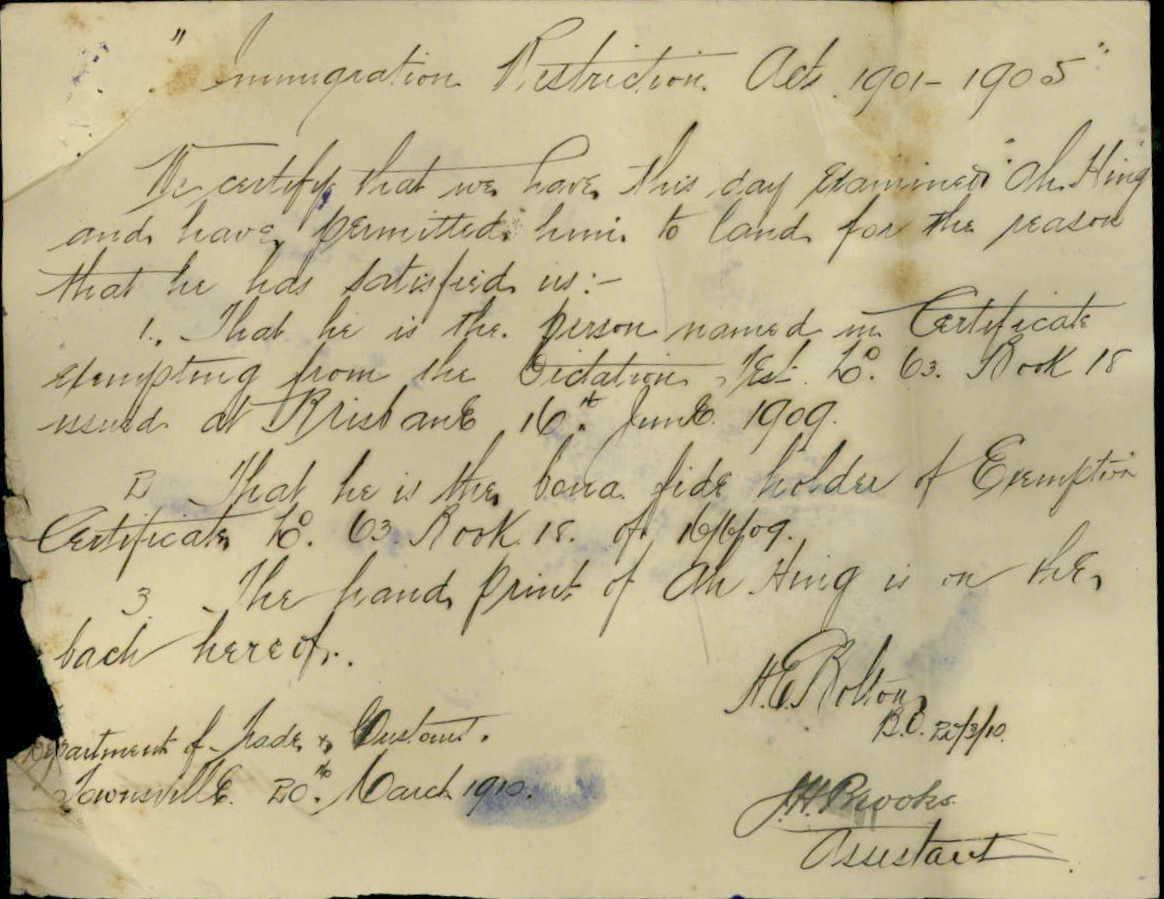 "Immigration Restriction Acts 1901-1905"
We certify that we have this day examined "Ah Hing
and have permitted him to land for the reason
that he has satisfied us:-
1. That he is the person named in Certificate
exempting from the Dictation Test No. 63. Book 18
issued at Brisbane 16th June 1909.
2 That he is the bona fide holder of Exemption
Certificate No. 63 Book 18. of 16/6/09.
3 The hand print of Ah Hing is on the
back hereof.
H.E. Bolton
B.O. /3/10.
Department of Trade & Customs.
Townsville. 20th March 1910.
J.H. Brooks
Assistant